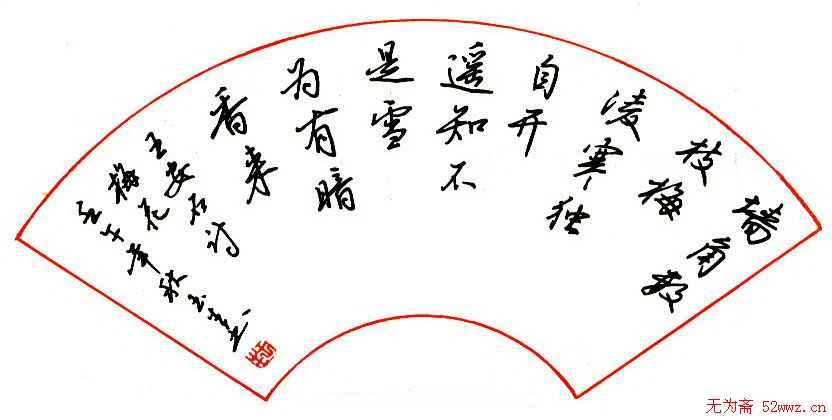 墙角数
枝梅
凌寒独
自开
遥知不
是雪
为有暗
香来
王安石诗
梅花
壬午年秋
无为斋 52wwz.cn